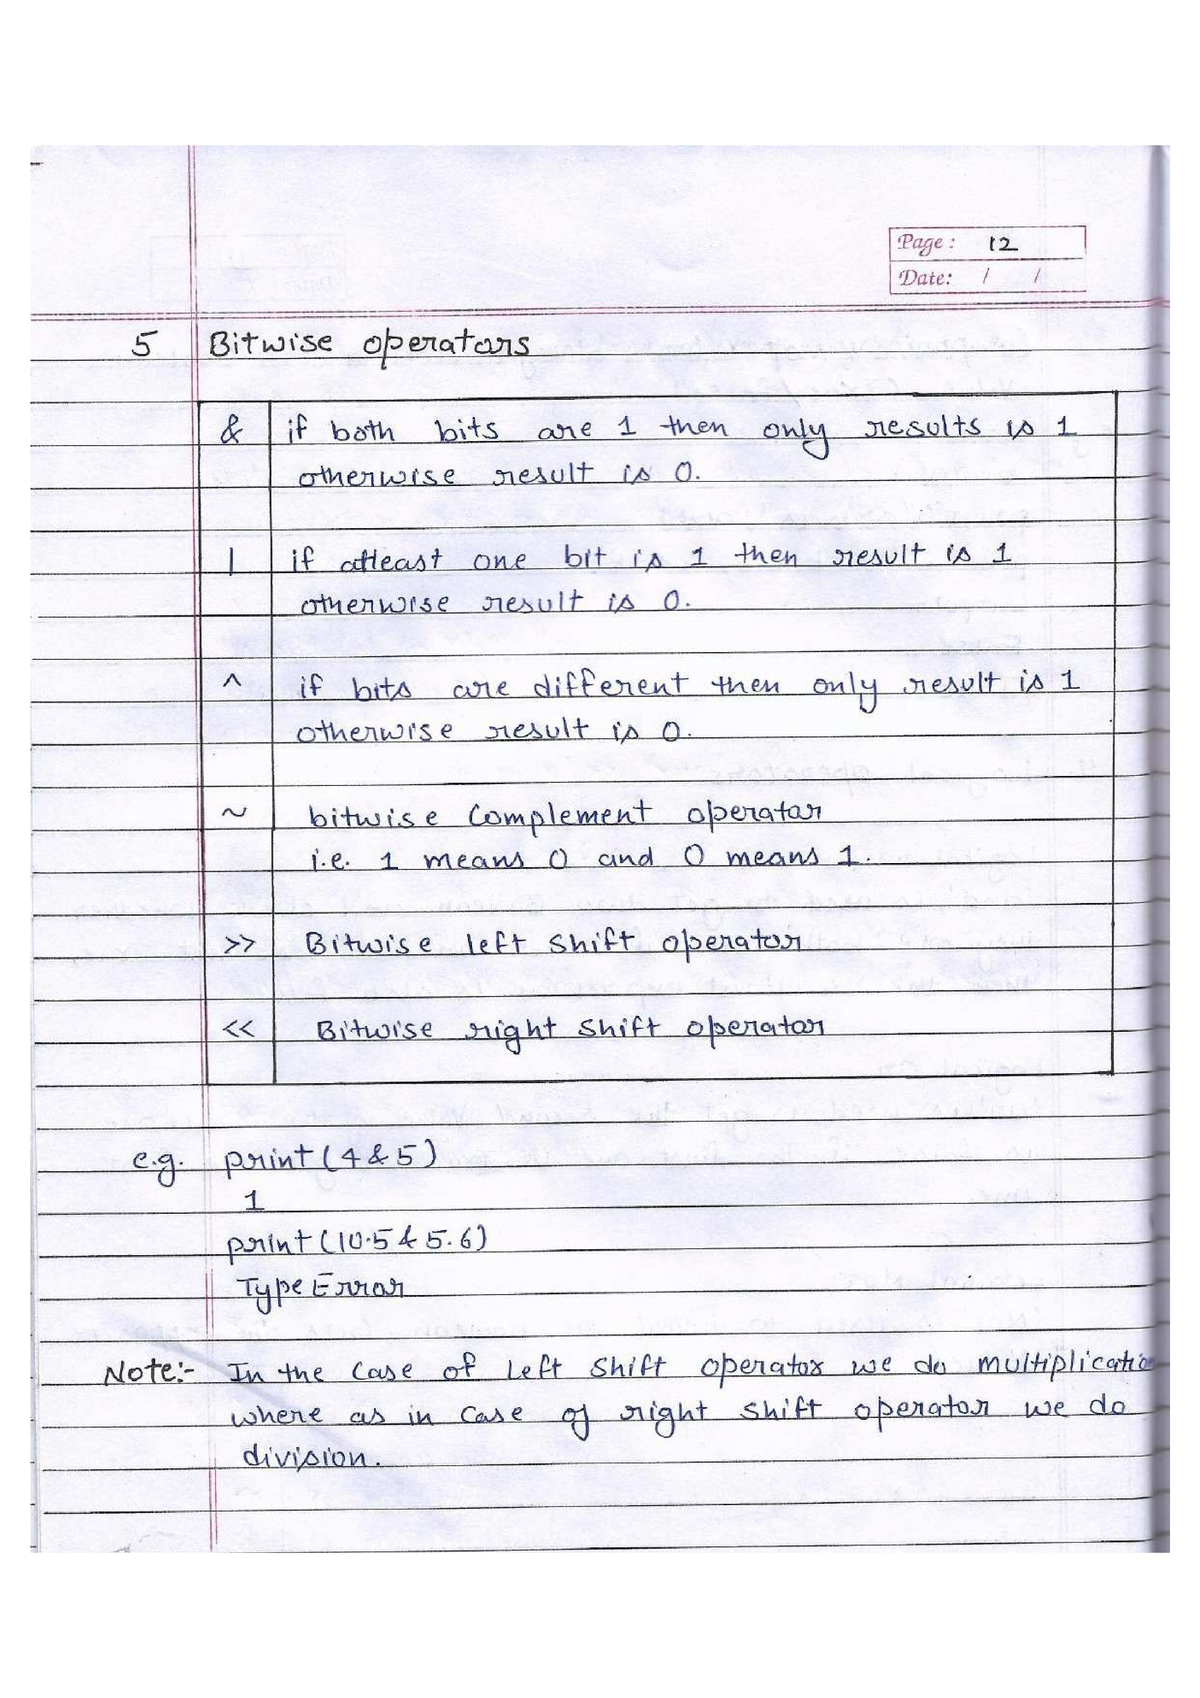 Page : 12
Date: / /
5 Bitwise operators
& if both bits are 1 then only results is 1
otherwise result is 0.
| if atleast one bit is 1 then result is 1
otherwise result is 0.
^ if bits are different then only result is 1
otherwise result is 0.
~ bitwise complement operator
i.e. 1 means 0 and 0 means 1.
>> Bitwise left shift operator
<< Bitwise right shift operator
e.g. print(4&5)
1
print(10.5&5.6)
TypeError
Note:- In the case of left shift operator we do multiplicatio
where as in case of right shift operator we do
division.